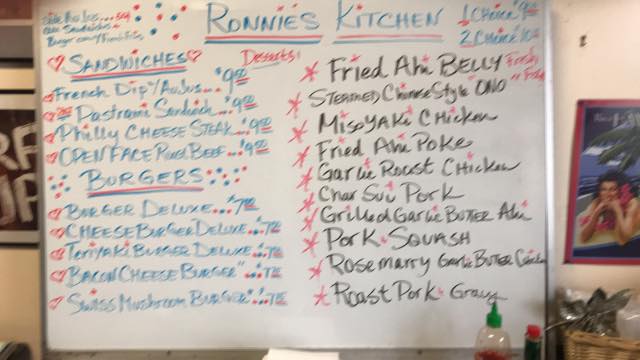 RONNIE'S KITCHEN
1 CHOICE
2 CHOICE
SANDWICHES
Desserts:
French Dip w/Au Jus...$9.00
Pastrami Sandwich...$9.00
Philly CHEESE STEAK...$9.00
OPEN FACE Roast BEEF...$9.00
BURGERS
BURGER DELUXE...$7.00
CHEESE BURGER DELUXE...$7.00
Teriyaki BURGER DELUXE...$7.00
BACON CHEESE BURGER...$7.00
Swiss Mushroom BURGER...$7.00
Fried Ahi BELLY
STEAMED Chinese Style ONO
MisoYAKi CHicken
Fried Ahi Poke
Garlic Roast CHicken
Char Sui Pork
Grilled Garlic BUTTER Ahi
Pork SQUASH
Rosemarry Garlic BUTTER
Roast Pork Gravy